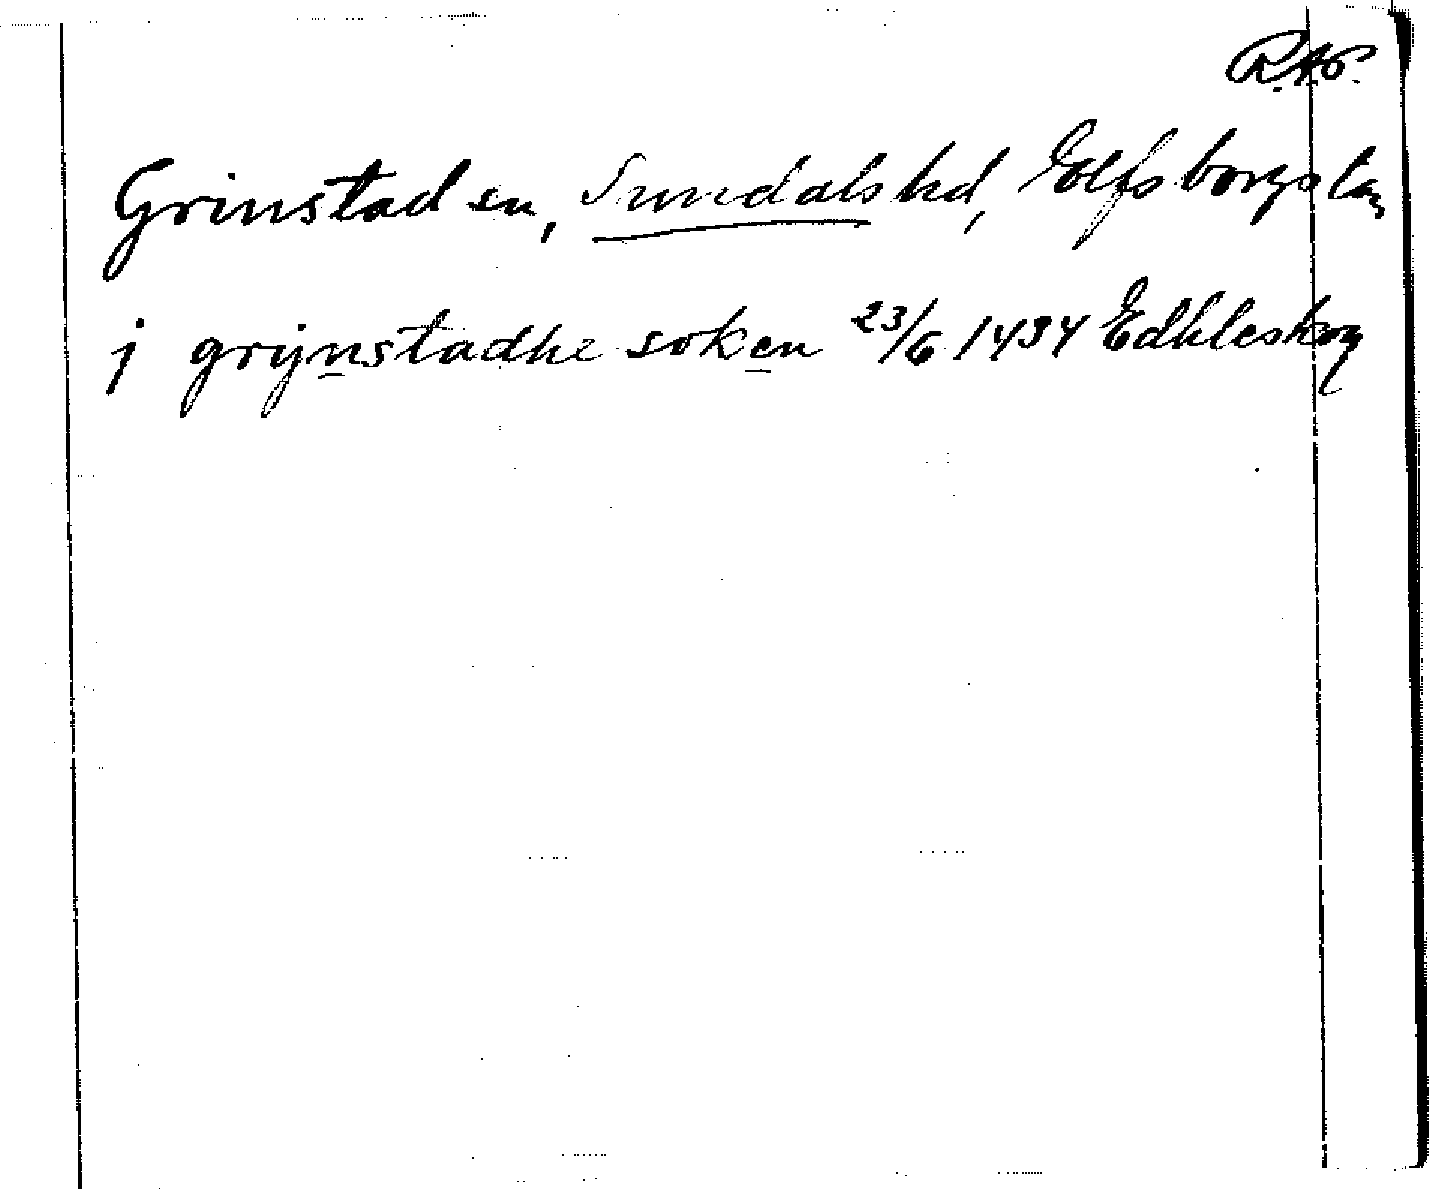 R.A.P.
Grinstad sn, Sundals hd, Elfsborgs län
j grijnstadhe soken 23/6 1434 Edhleskog